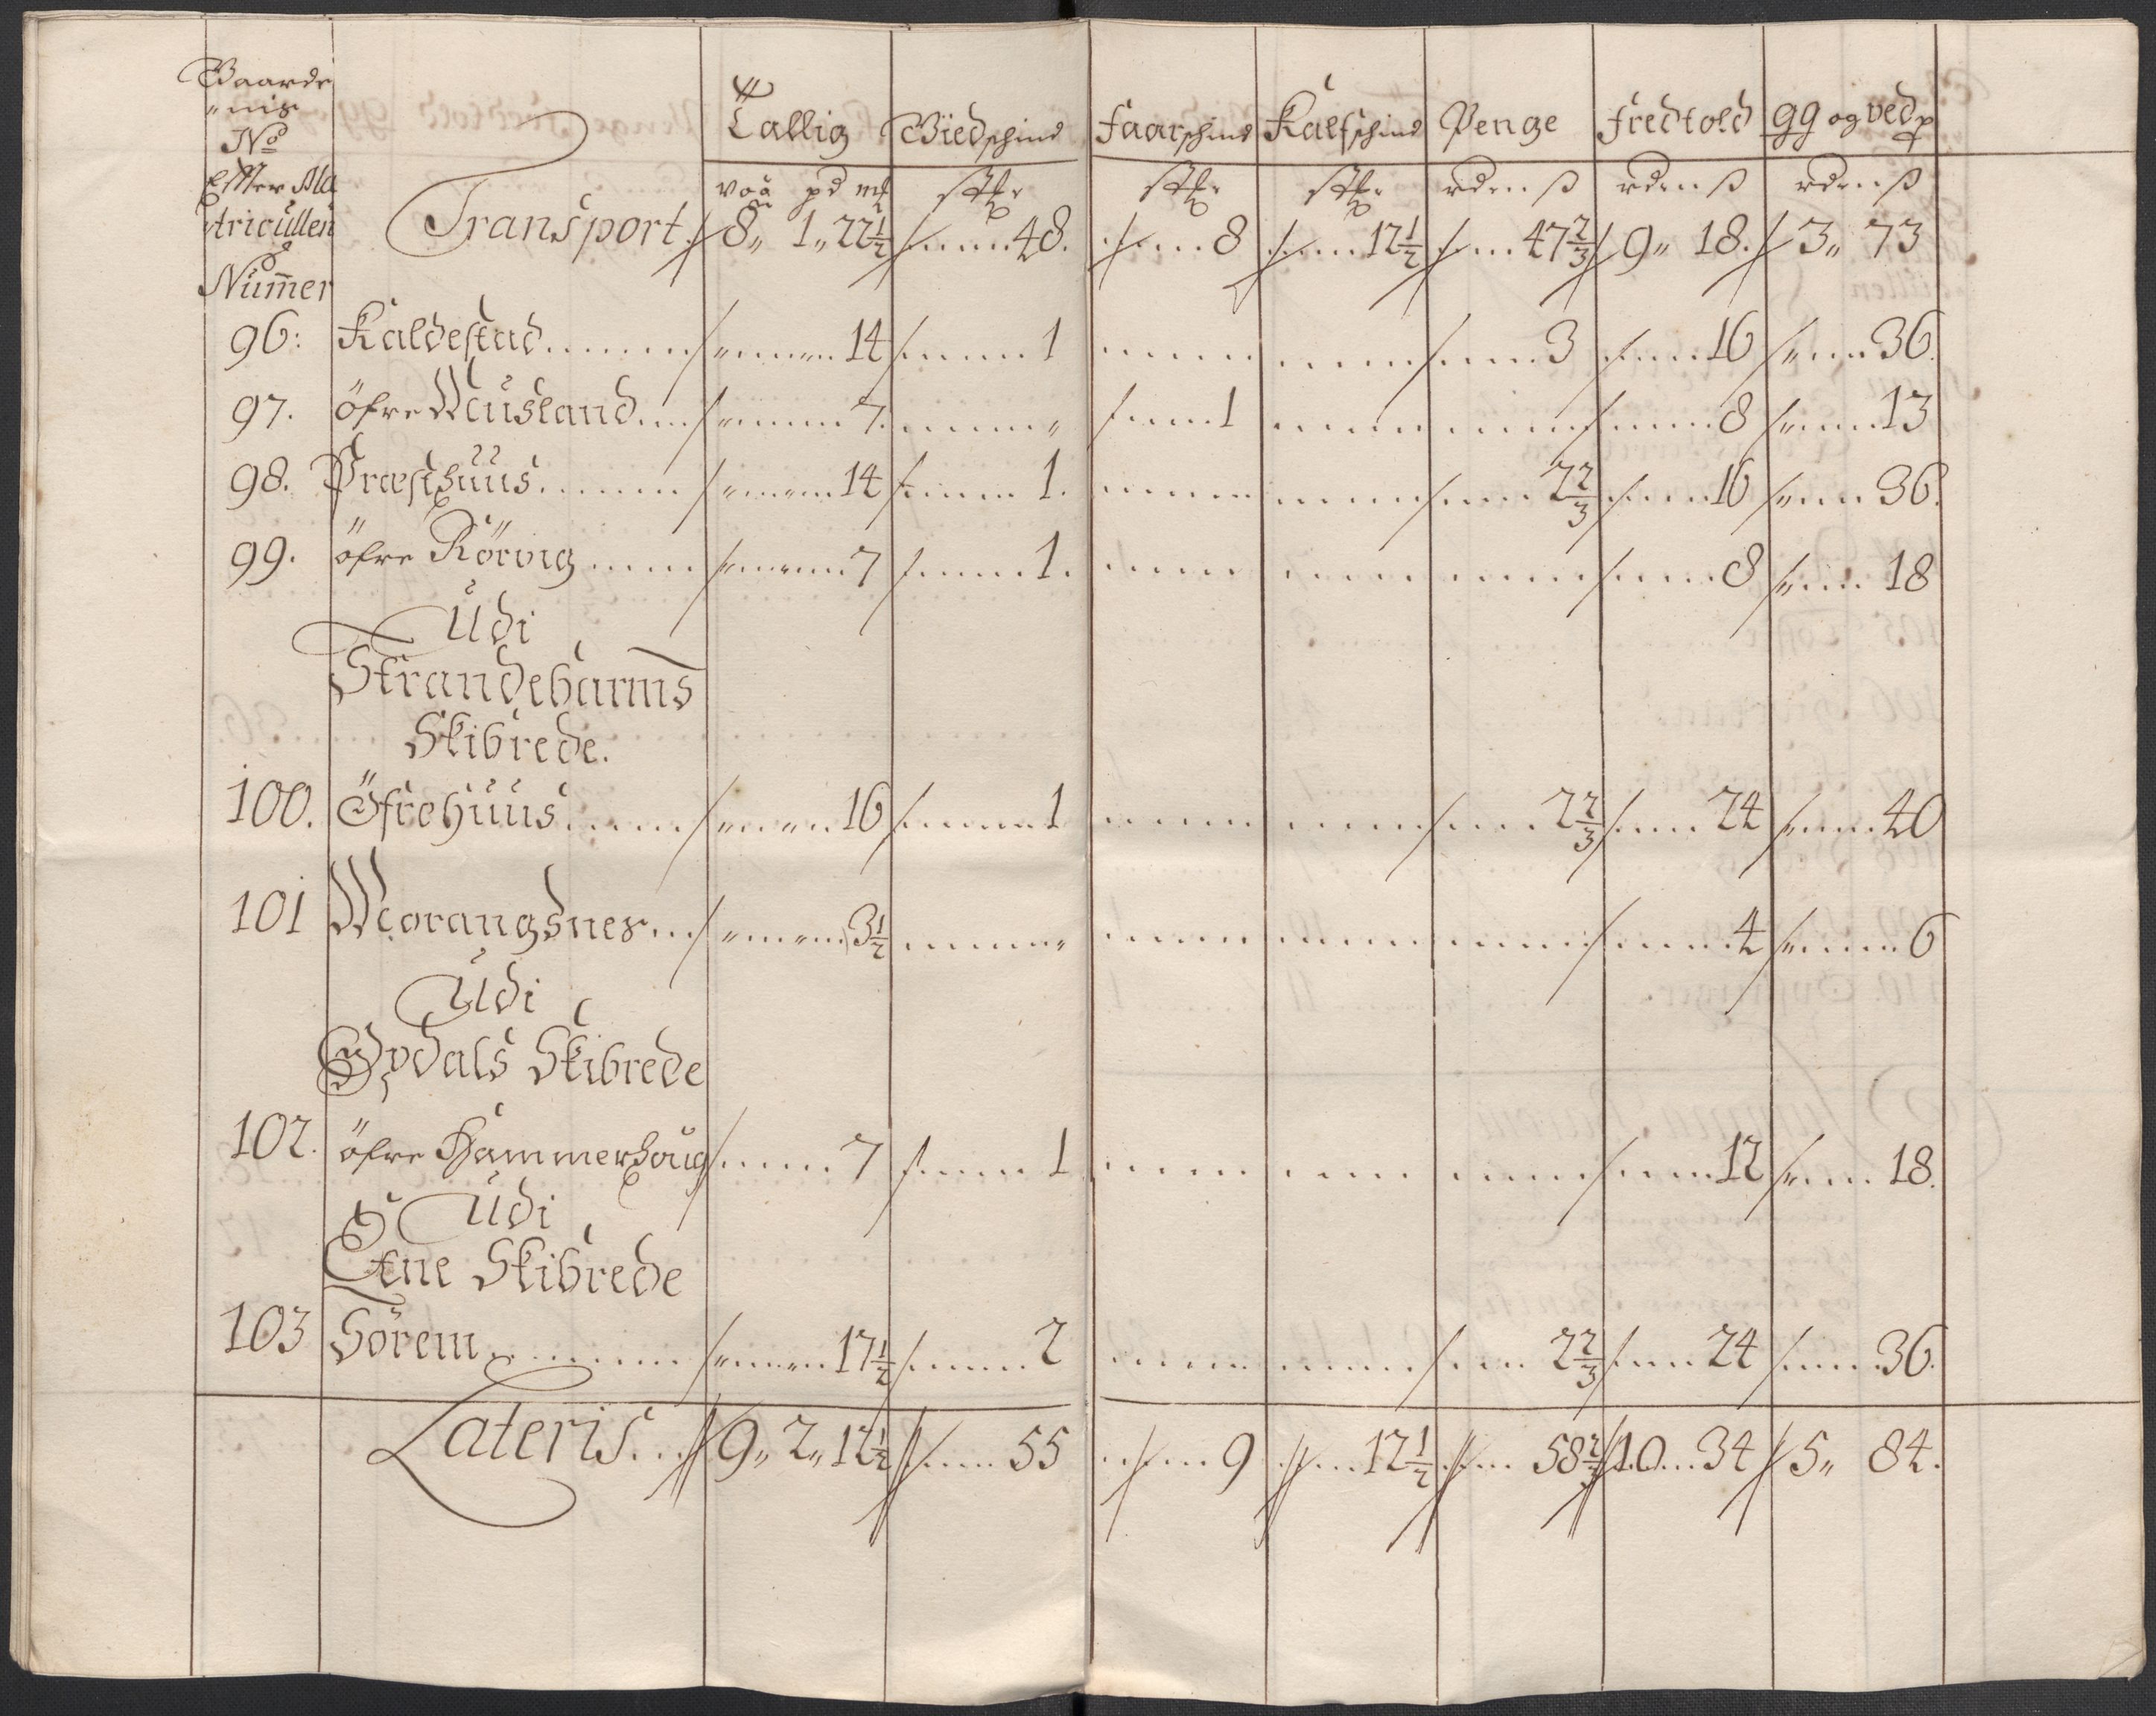 Gaarde
"nis
No
Effter Ma
tricullen
Nummer
Tallig Giedschind Faarschind Kalfschind Penge Fredtold gg og ved
voü pd mk stk: stk: stk: rd ß rd ß rd ß
Transport 8" 1" 22½ 48. 8 12½ 47⅔ 9" 18. 3" 73
96: Kaldestad 14 1 3 16 36.
97. öfre Musland 7. 1 8 13
98. Præsthuus 14 1. 2⅔ 16 36.
99. öfre Rörvig 7 1. 8 18
Udi
Strandebarms
Skibrede.
100. Öfrehuus 16 1 2⅔ 24 40
101 Morangsnes 3½ 4 6
Udi
Opdals Skibrede
102. öfre Hammerhoug 7 1 12 18.
Udi
Etne Skibrede
103 Sörem 17½ 2 2⅔ 24 36.
Lateris 9" 2" 12½ 55 9 12½ 58⅔ 10 34 5" 84.